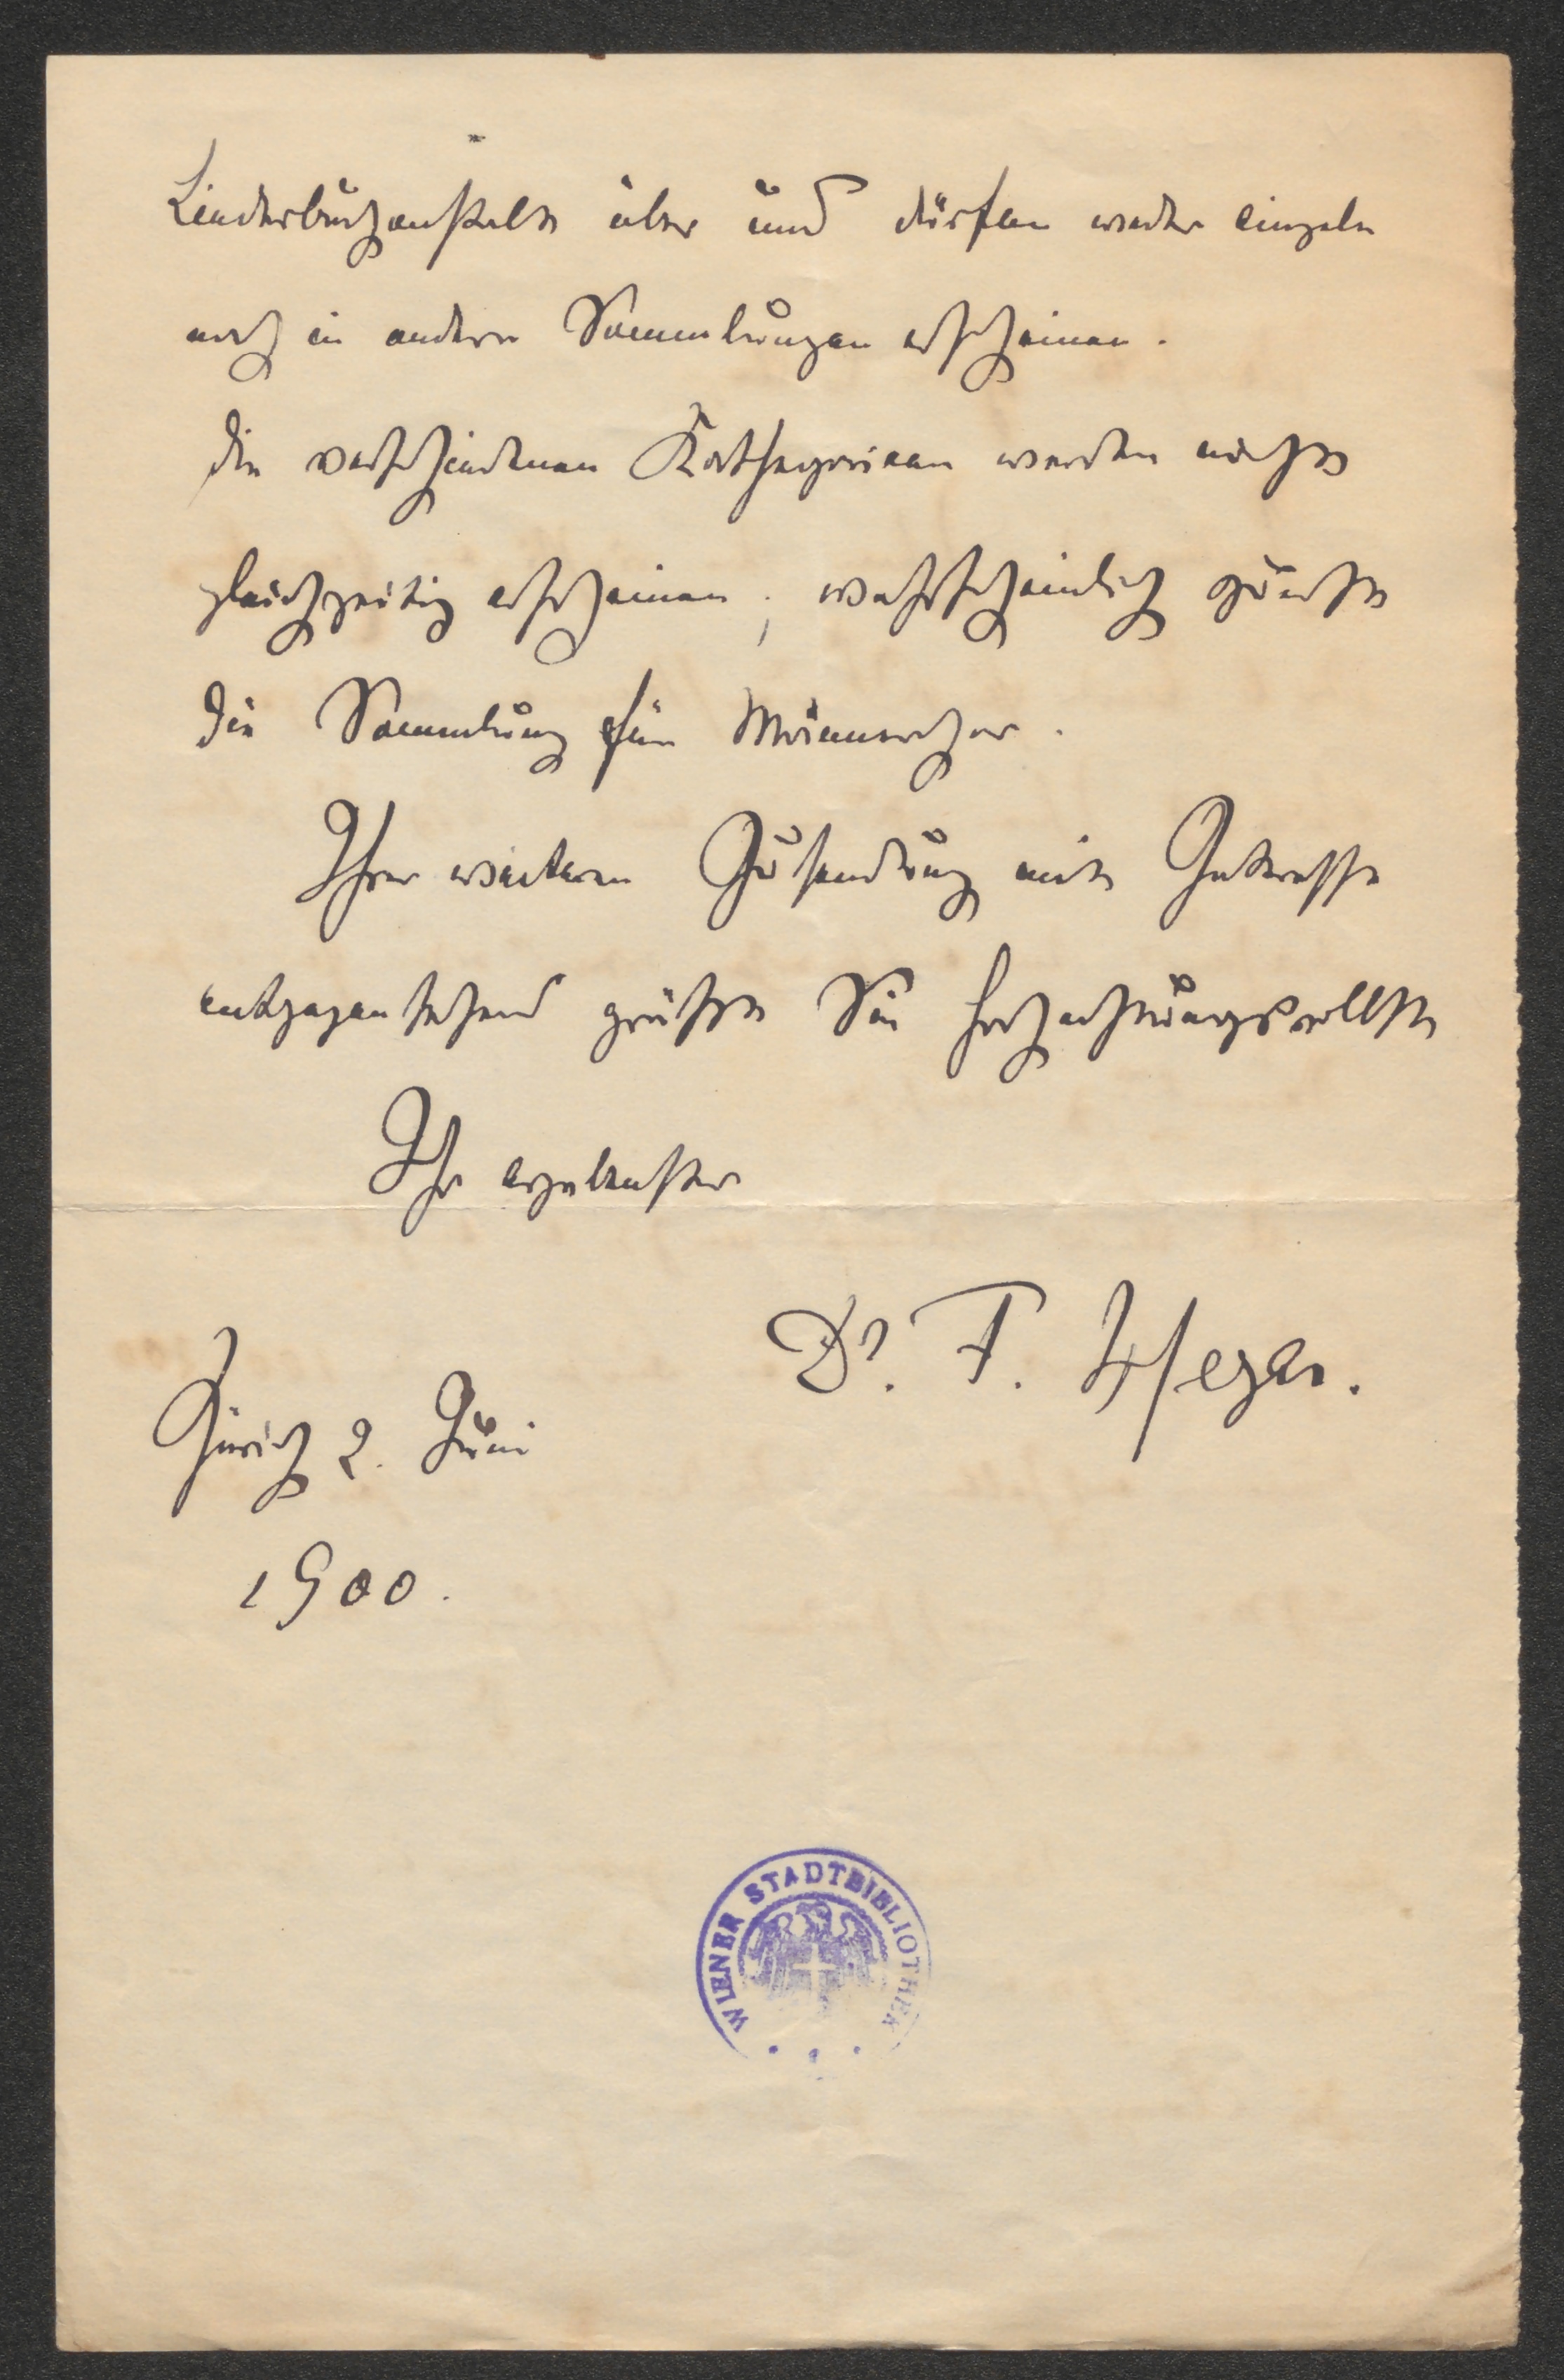 Liederbuchanstalt über und dürfen weder einzeln
noch in andern Sammlungen erscheinen.
Die verschiedenen Kathegorieen werden nicht
gleichzeitig erscheinen; wahrscheinlich zuerst
die Sammlung für Männerchor.
Ihrer weiteren Zusendung mit Interesse
entgegensehend grüßt Sie hochachtungsvollst
Ihr ergebenster
Dr. F. Hegar.
Zürich 2. Juni
1900.
WIENER STADTBIBLIOTHEK